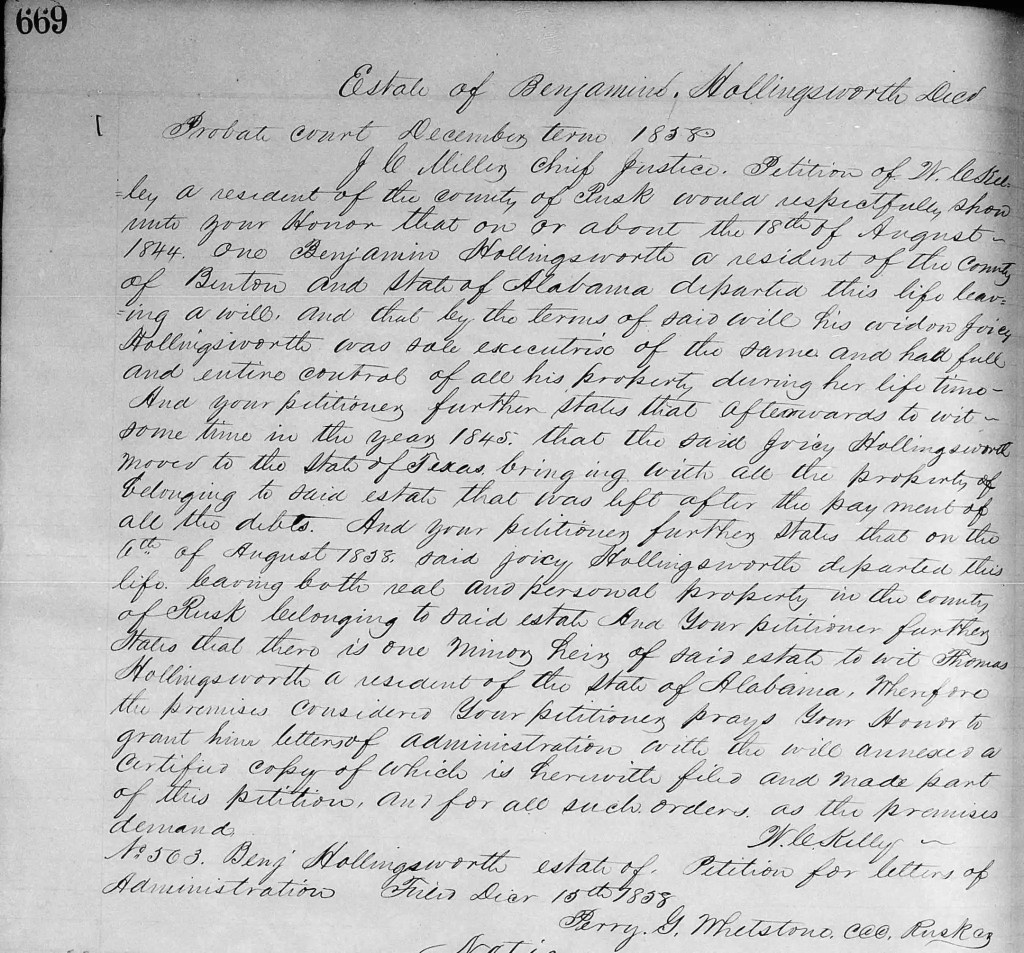 669
Estate of Benjamin Hollingsworth Decd
Probate court December term 1858
J C Miller Chief Justice. Petition of W. C Kel-
=ley a resident of the county of Rusk would respectfully show
unto your Honor that on or about the 18th of August
1844. one Benjamin Hollingsworth a resident of the County
of Benton and State of Alabama departed this life leav=
=ing a will. and that by the terms of said will his widow Joicy
Hollingsworth was sole executrix of the same and had full
and entire control of all his property during her life time-
And your petitioner further states that afterwards to wit
some time in the year 1845. that the said Joicy Hollingsworth
moved to the State of Texas bringing with all the property of
belonging to said estate that was left after the payment of
all the debts. And your petitioner further states that on the
6th of August 1858. said Joicy Hollingsworth departed this
life. leaving both real and personal property in the county
of Rusk belonging to said estate And Your petitioner further
States that there is one minor heir of said estate to wit Thomas
Hollingsworth a resident of the State of Alabama. Wherefore
the premises considered Your petitioner prays Your Honor to
grant him letters of administration with the will annexed a
Certified copy of which is herewith filed and made part
of this petition. and for all such orders. as the premises
demand
W. C Kelley
No 563. Benj Hollingsworth estate of. Petition for letters of
Administration Filed Decr 15th 1858
Perry. G. Whetstone. CCC. Rusk Co
Notice